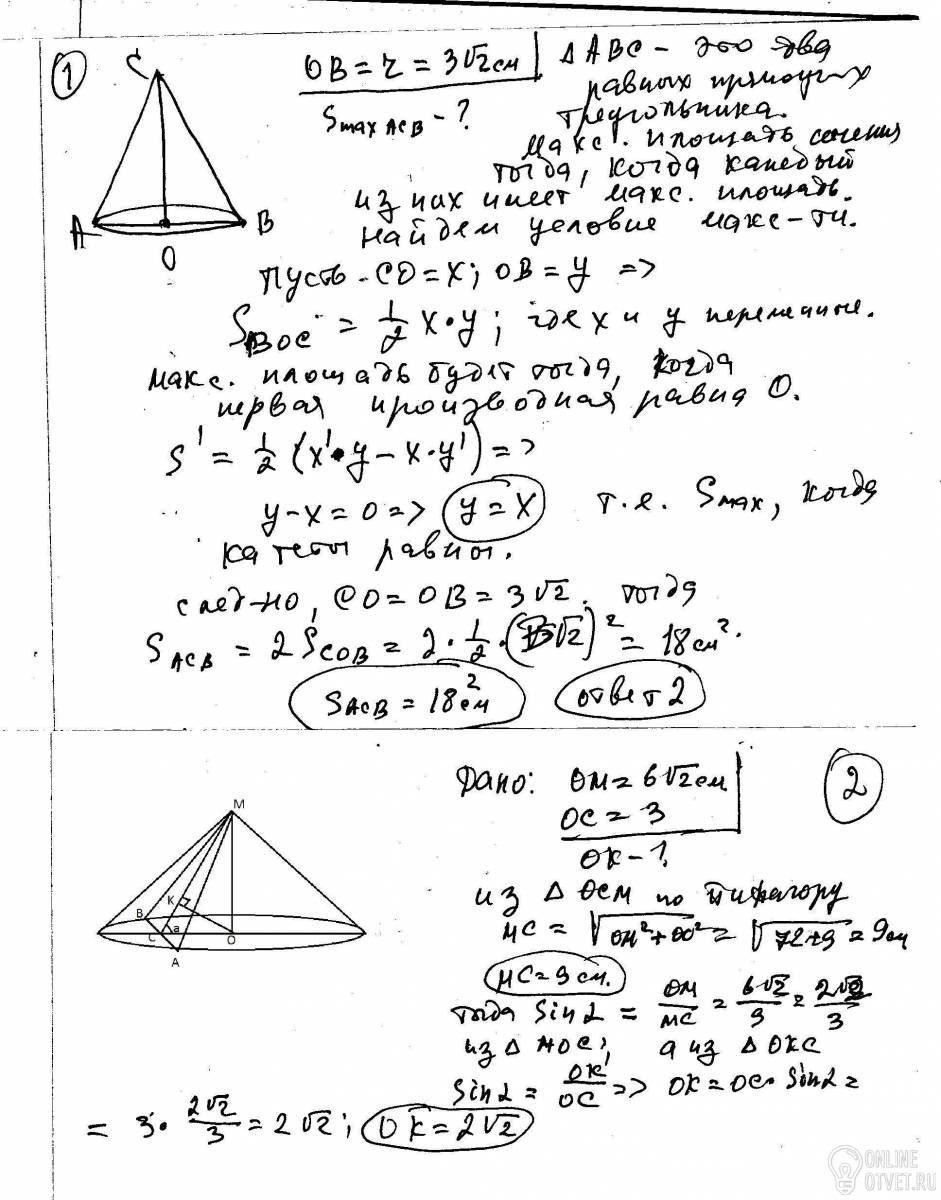 1
C
A
B
O
OB = r = 3√2 см
S max ACB - ?
△ABC - это два
равных прямоугих
треугольника.
Макс. площадь сечения
тогда, когда каждый
из них имеет макс. площадь.
Найдем условие макс-ти.
Пусть CO = x; OB = y =>
S BOC = 1/2 x·y; где x и y переменные.
Макс. площадь будет тогда, когда
первая производная равна 0.
S' = 1/2 (x'·y - x·y') =>
y - x = 0 => y = x т.е. Smax, когда
катеты равны.
след-но, CO = OB = 3√2. тогда
S ACB = 2 S COB = 2·1/2·(3√2)² = 18 см².
S ACB = 18 см² ответ 2
2
M
B
K
C
a
O
A
Дано: OM = 6√2 см
OC = 3
OK - ?
из △ OCM по Пифагору
MC = √OM² + OC² = √72+9 = 9 см
MC = 9 см.
тогда Sin α = OM/MC = 6√2/9 = 2√2/3
из △ MOC; а из △ OKC
Sin α = OK/OC => OK = OC· Sin α =
= 3· 2√2/3 = 2√2; OK = 2√2
ONLINE
OTVET.RU